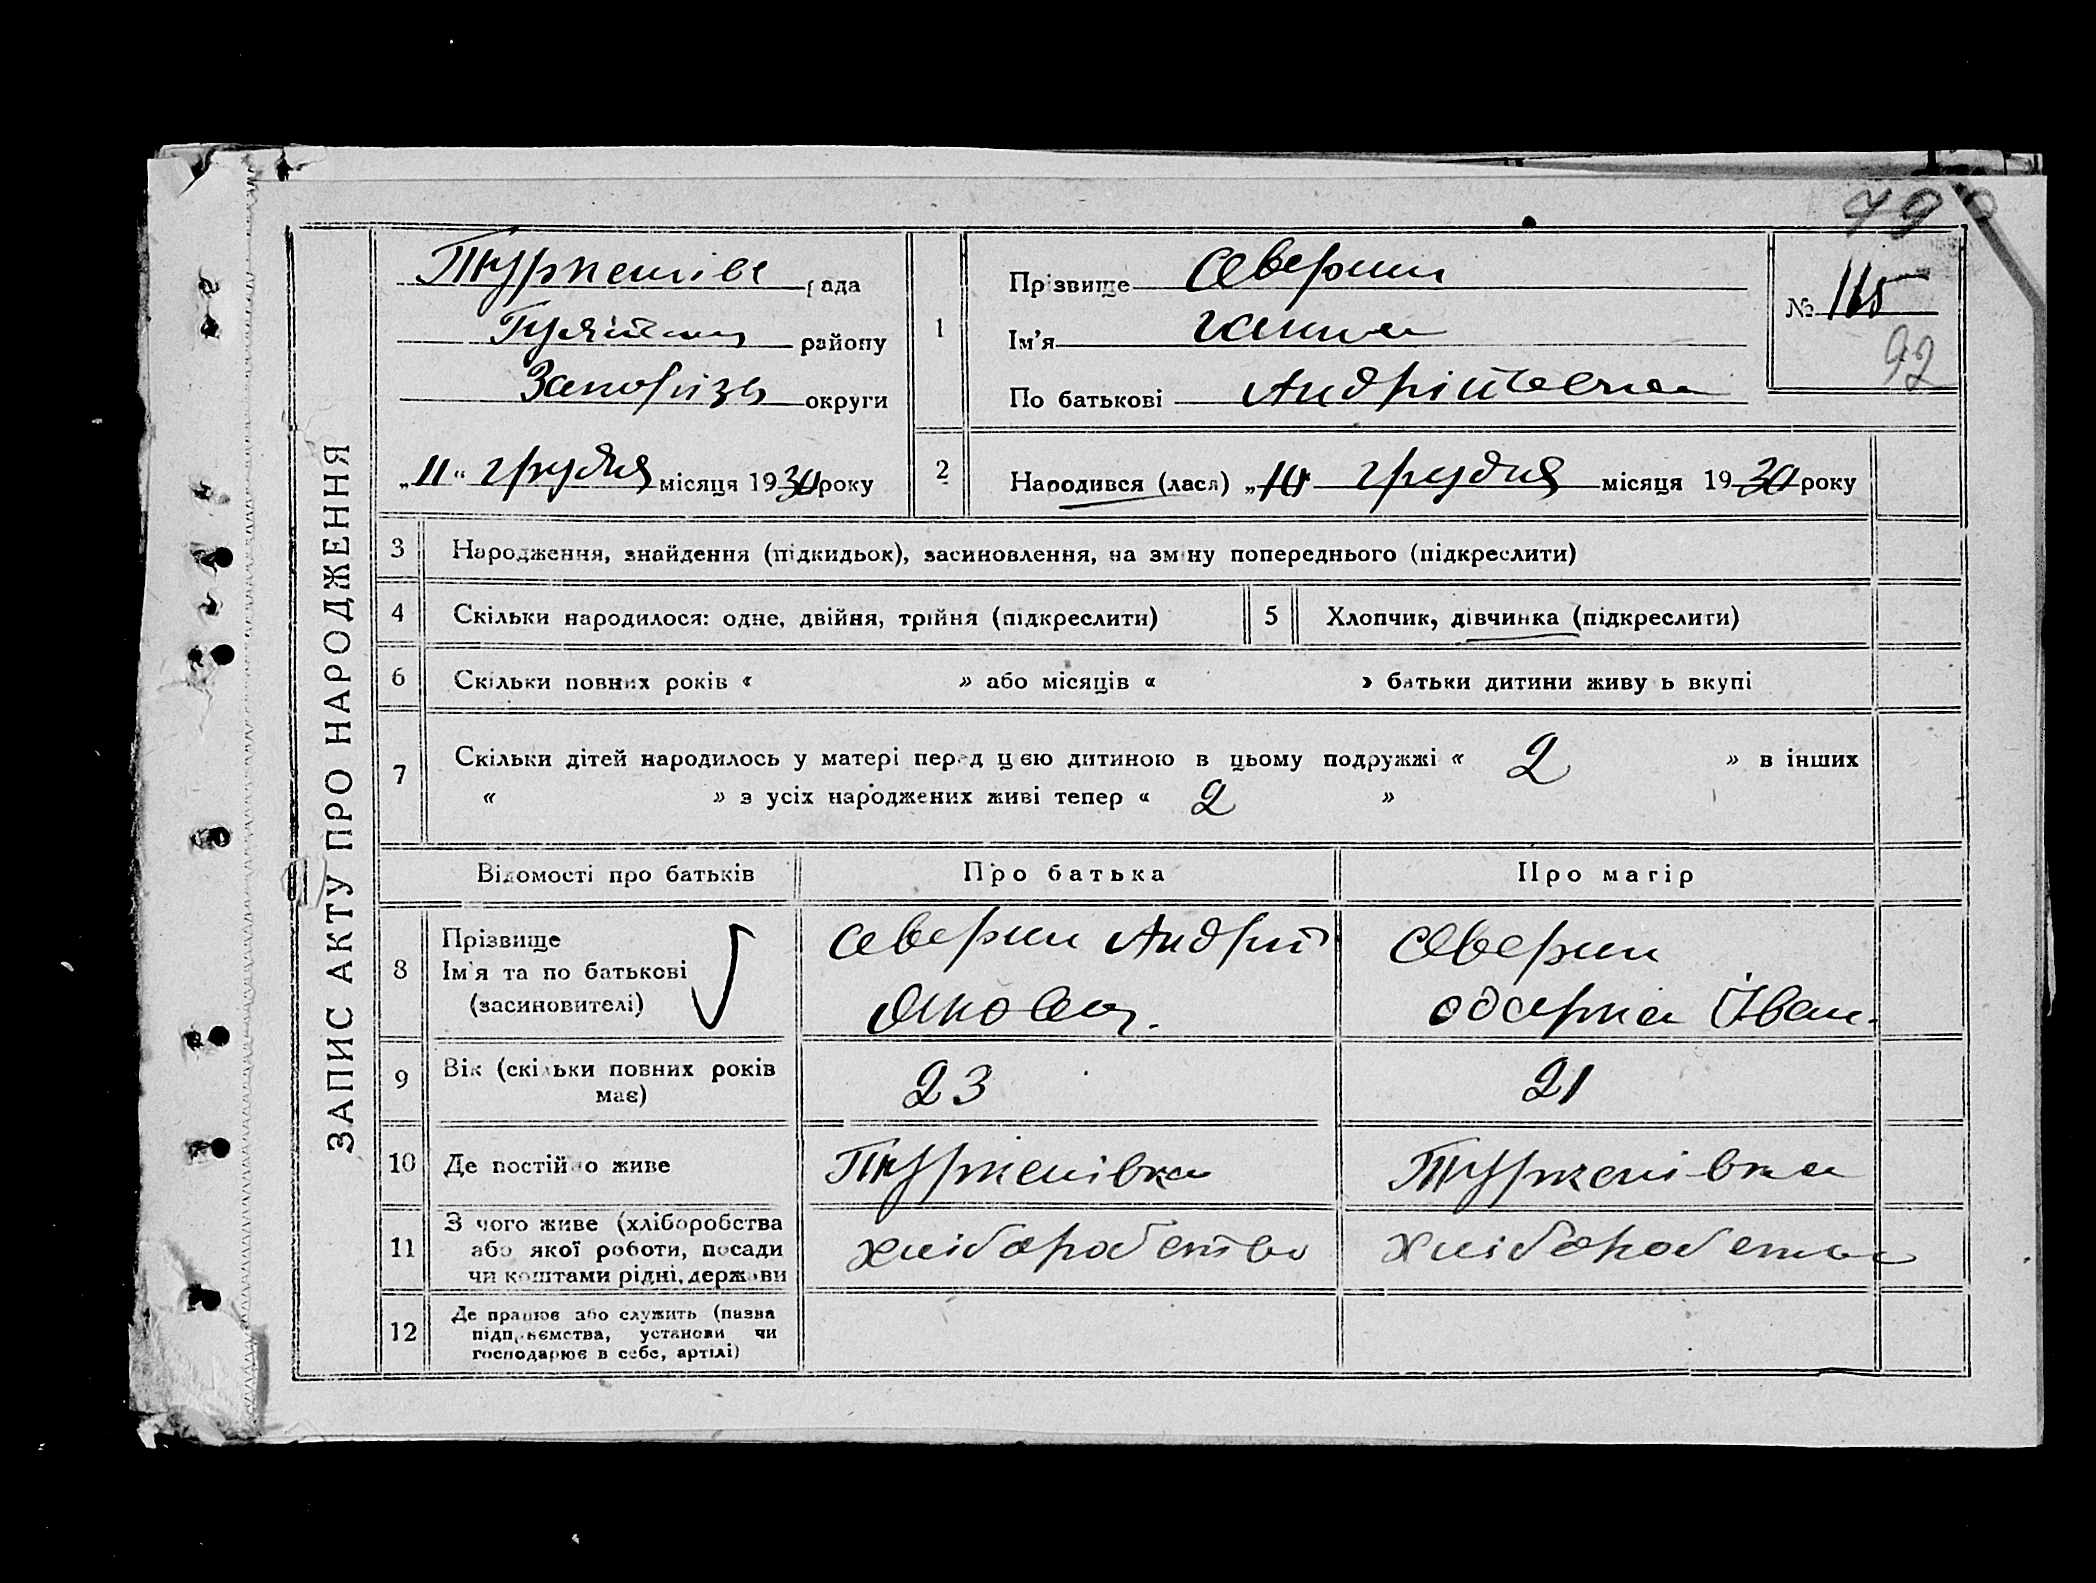 ЗАПИС АКТУ ПРО НАРОДЖЕННЯ
79
Туркенівс рада
району
Запоріз. округи
„11“ грудня місяця 1930 року
1
Прізвище Северин
Ім'я Ганна
По батькові Андріївна
№ 115
92
2
Народився (лася) „10 грудня місяця 1930 року
3 Народження, знайдення (підкидьок), засиновлення, на зміну попереднього (підкреслити)
4 Скільки народилося: одне, двійня, трійня (підкреслити)
5 Хлопчик, дівчинка (підкреслити)
6 Скільки повних років « » або місяців « » батьки дитини живуть вкупі
7 Скільки дітей народилось у матері перед цією дитиною в цьому подружжі « 2 » в інших
« » з усіх народжених живі тепер « 2 »
Відомості про батьків Про батька Про матір
8 Прізвище
Ім'я та по батькові
(засиновителі)
Северин Андрій
Яков.
Северин
Одарка Іван.
9 Вік (скільки повних років
має)
23
21
10 Де постійно живе Туркенівка Туркенівка
11 З чого живе (хліборобства
або якої роботи, посади
чи коштами рідні, держави
хліборобство
хліборобство
12 Де працює або служить (назва
підприємства, установи чи
господарює в себе, артілі)